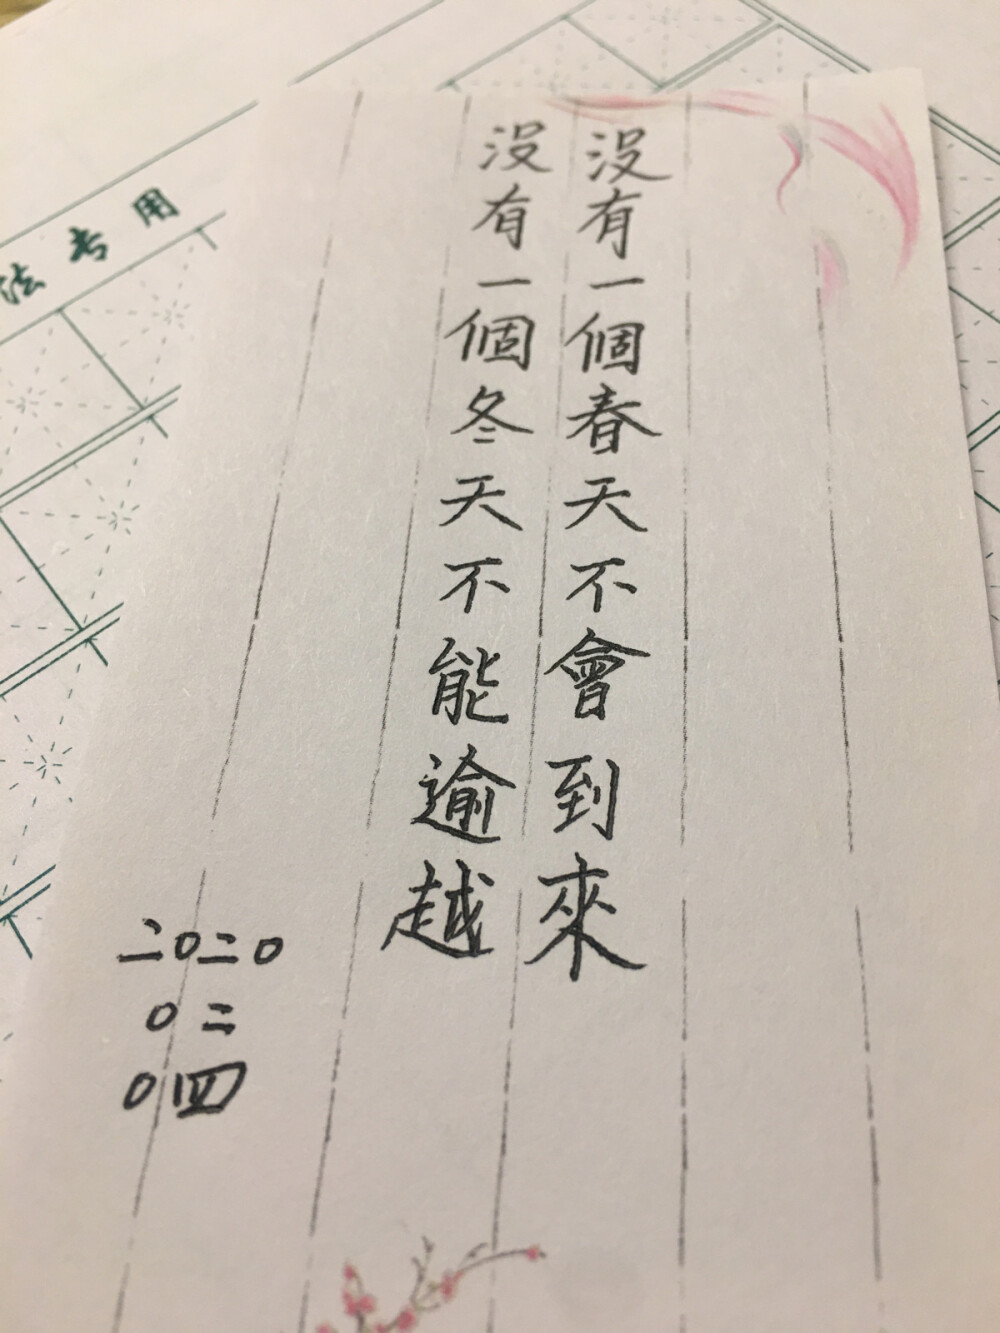 沒有一個春天不會到來
沒有一個冬天不能逾越
二〇二〇
〇二
〇四
法专用